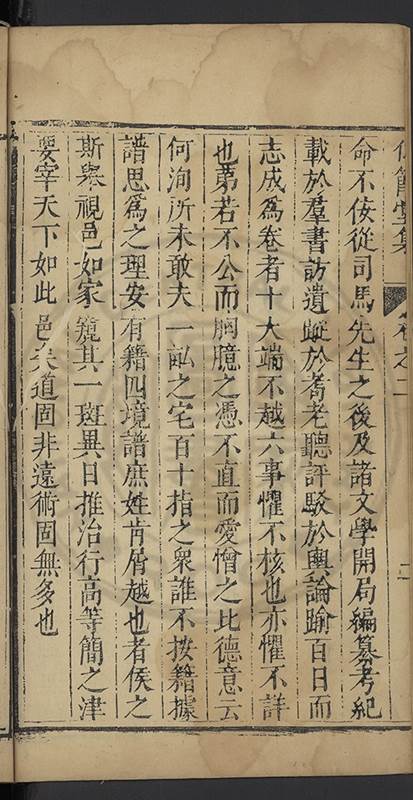 卷之二 二
命不佞從司馬先生之後及諸文學開局編纂考紀
載於羣書訪遺蹤於耆老聽評駁於輿論踰百日而
志成爲卷者十大端不越六事懼不核也亦懼不詳
也第若不公而胸臆之憑不直而愛憎之比德意云
何洵所未敢夫一訟之宅百十指之衆誰不按籍據
譜思爲之理安有籍四境譜庶姓肯屑越也者侯之
斯舉視邑如家窺其一斑異日推治行高等簡之津
要宰天下如此邑矣道固非遠術固無多也